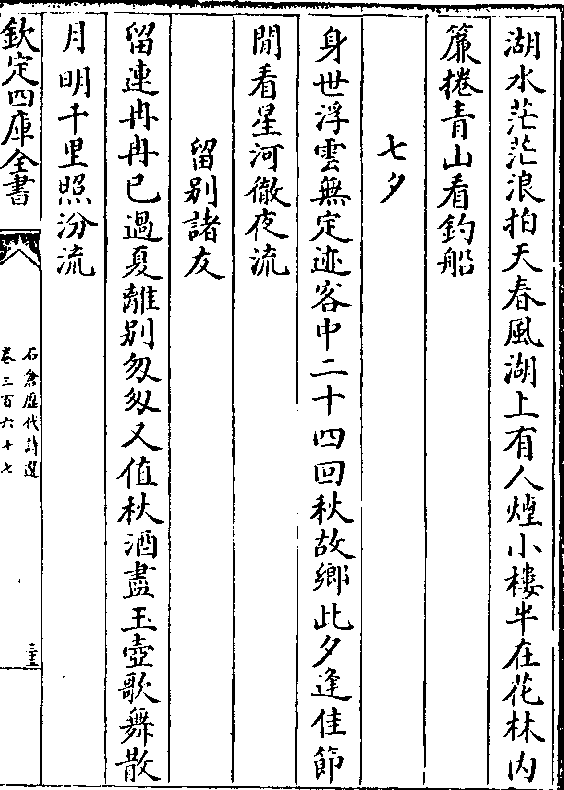 湖水茫茫浪拍天春風湖上有人煙小樓半在花林内
簾捲青山看釣船
七夕
身世浮雲無定迹客中二十四回秋故鄉此夕逢佳節
閒看星河徹夜流
留别諸友
留連冉冉已過夏離别匆匆又值秋酒盡玉壺歌舞散
月明千里照汾流
欽定四庫全書
石倉歷代詩選
卷三百六十七